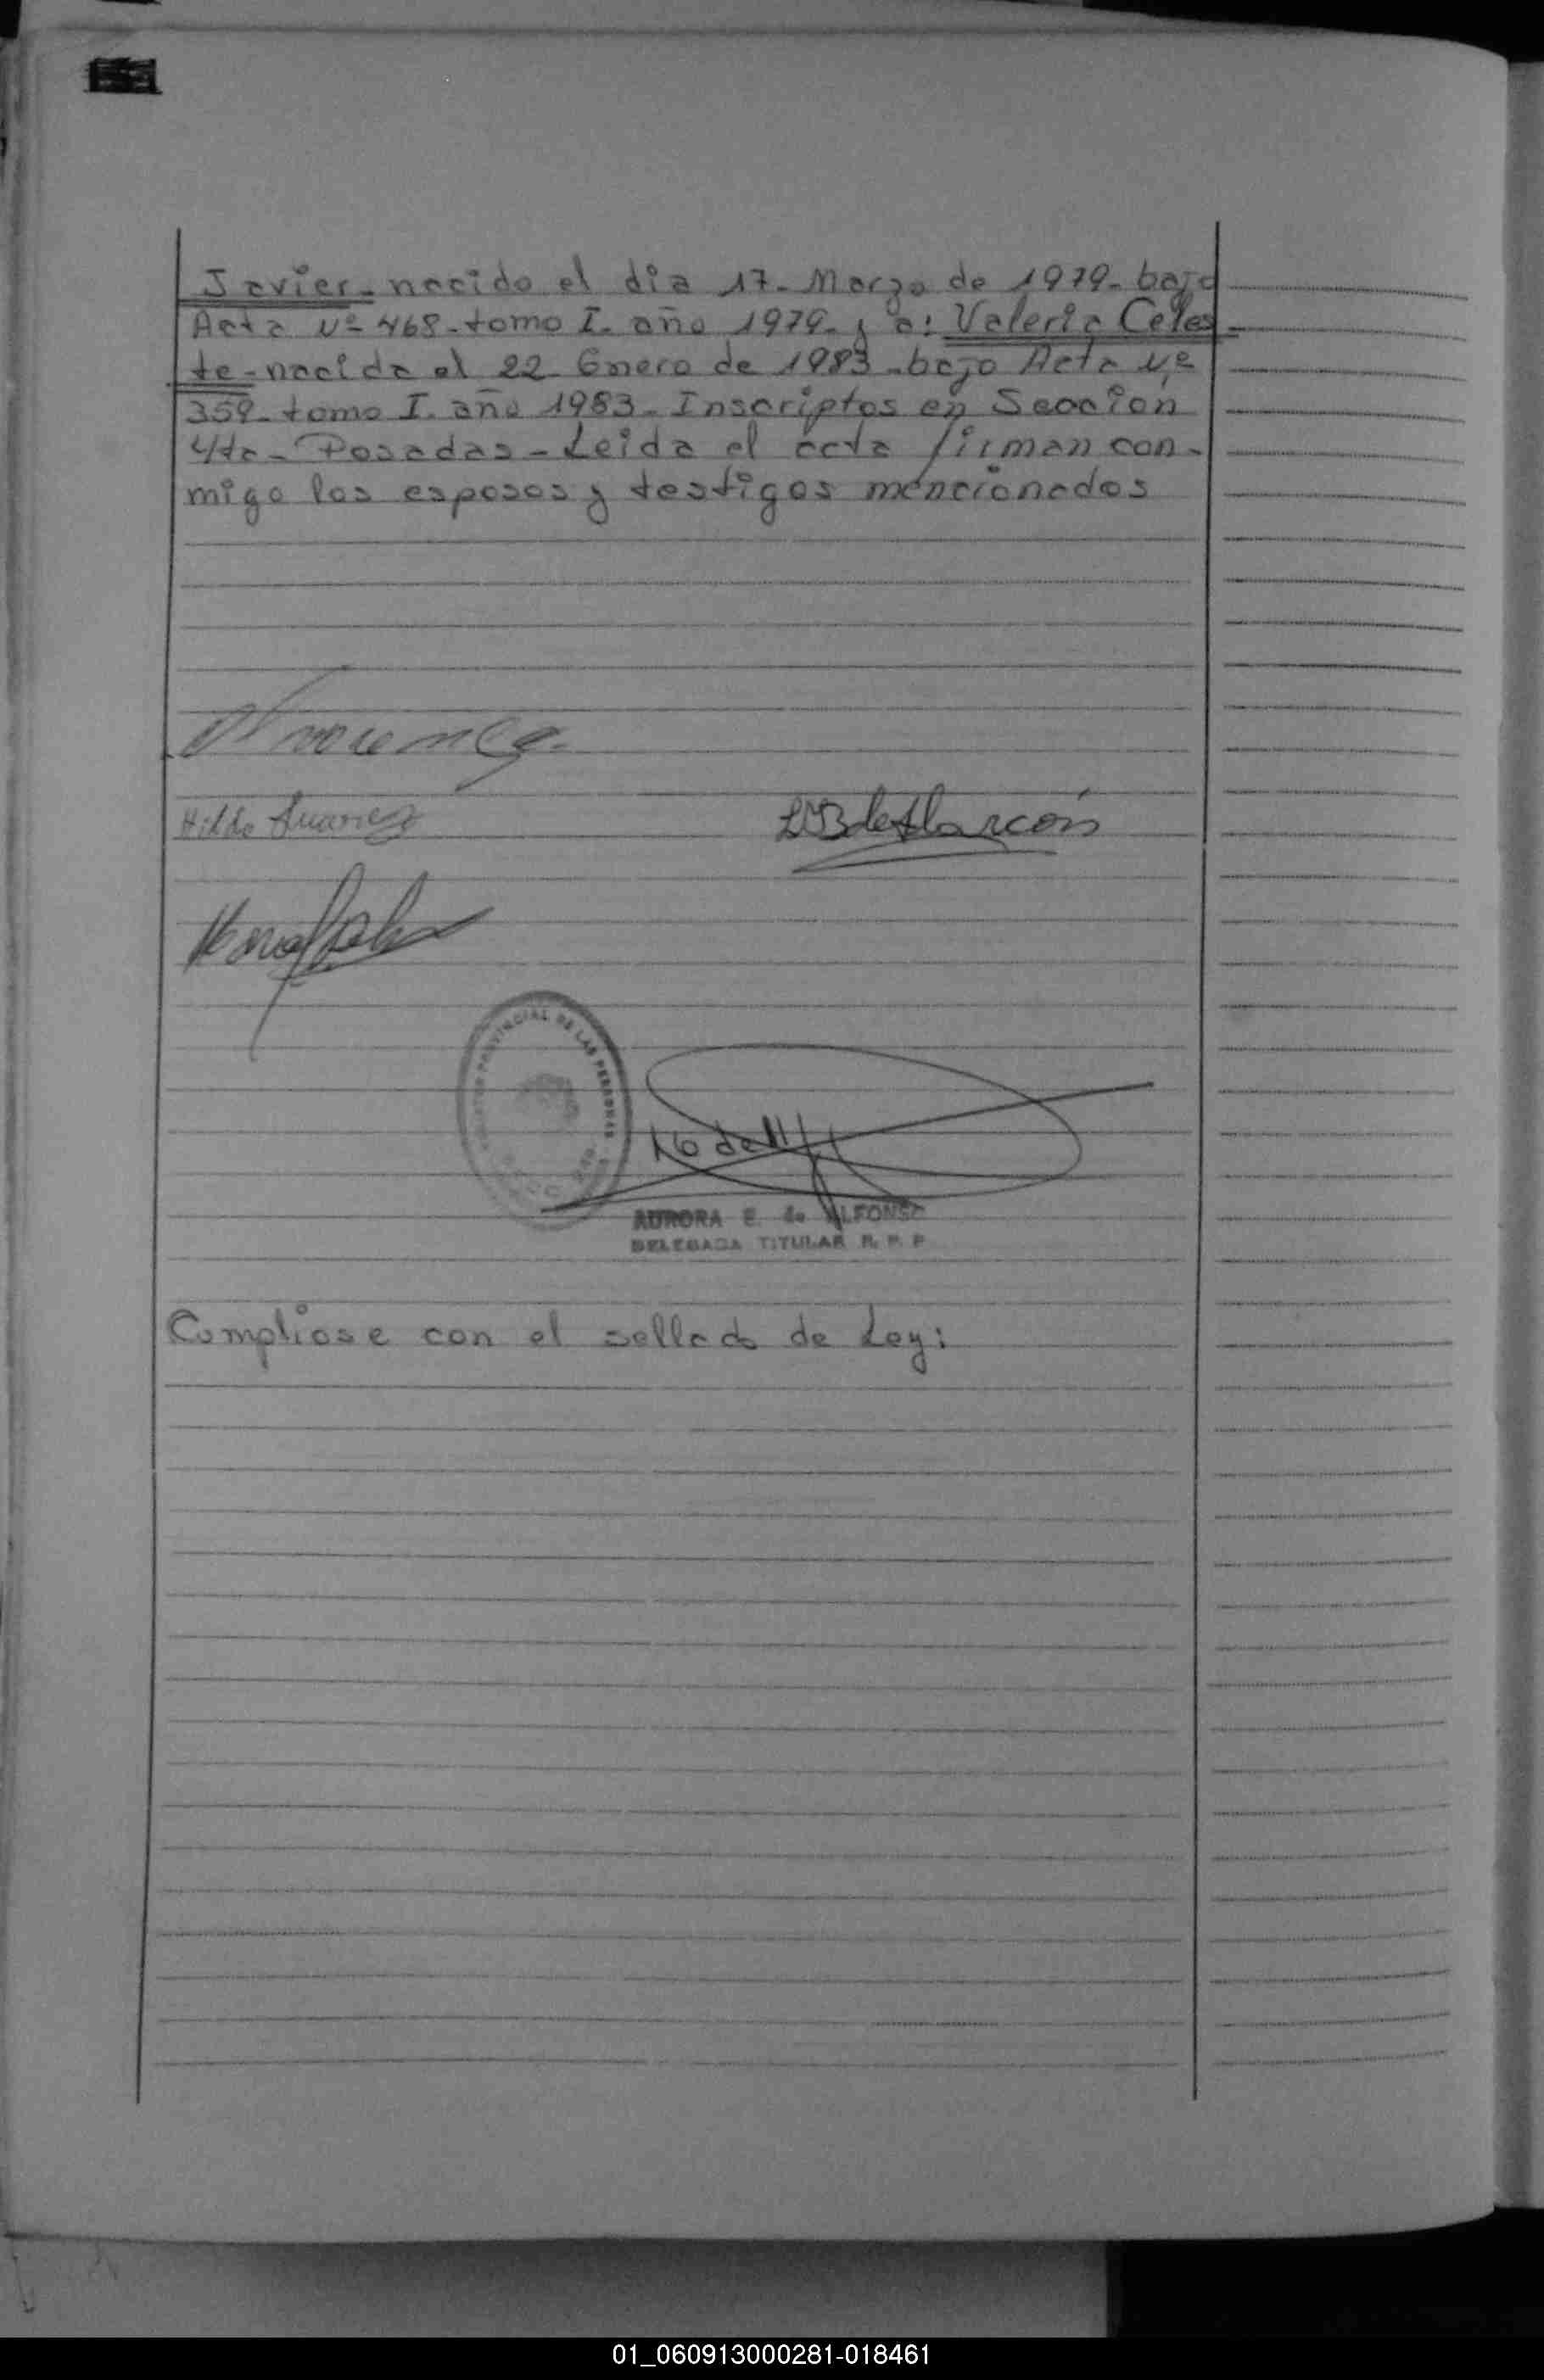 Javier - nacido el dia 17 - Marzo de 1979 - bajo
Acta Nº 468 - tomo I - año 1979 - y a: Valeria Celes
te - nacida el 22 - Enero de 1983 - bajo Acta Nº
359 - tomo I - año 1983 - Inscriptos en Seccion
4ta - Posadas - Leida el acta firman con-
migo los esposos y testigos mencionados
Hilda Suarez
de Alarcón
PROVINCIAL DE LAS PERSONAS
AURORA E. de ALFONSO
DELEGADA TITULAR R. P. P
Compliose con el sellado de Ley:
01_060913000281-018461